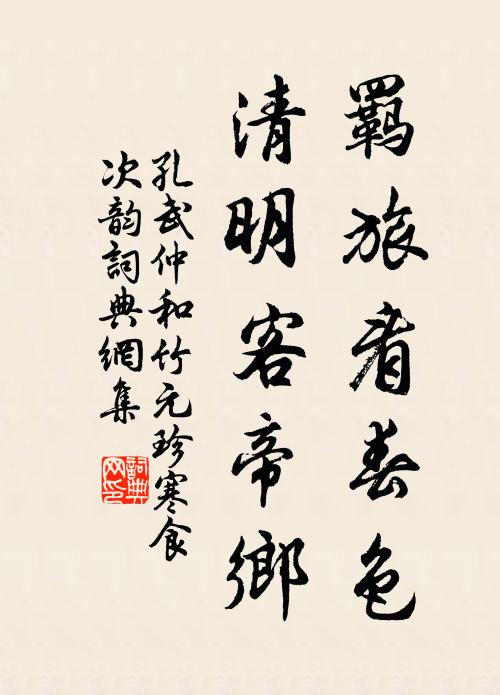 羈旅看春色
清明客帝鄉
孔武仲和竹元珍寒食
次韵詞典網集
詞典网印